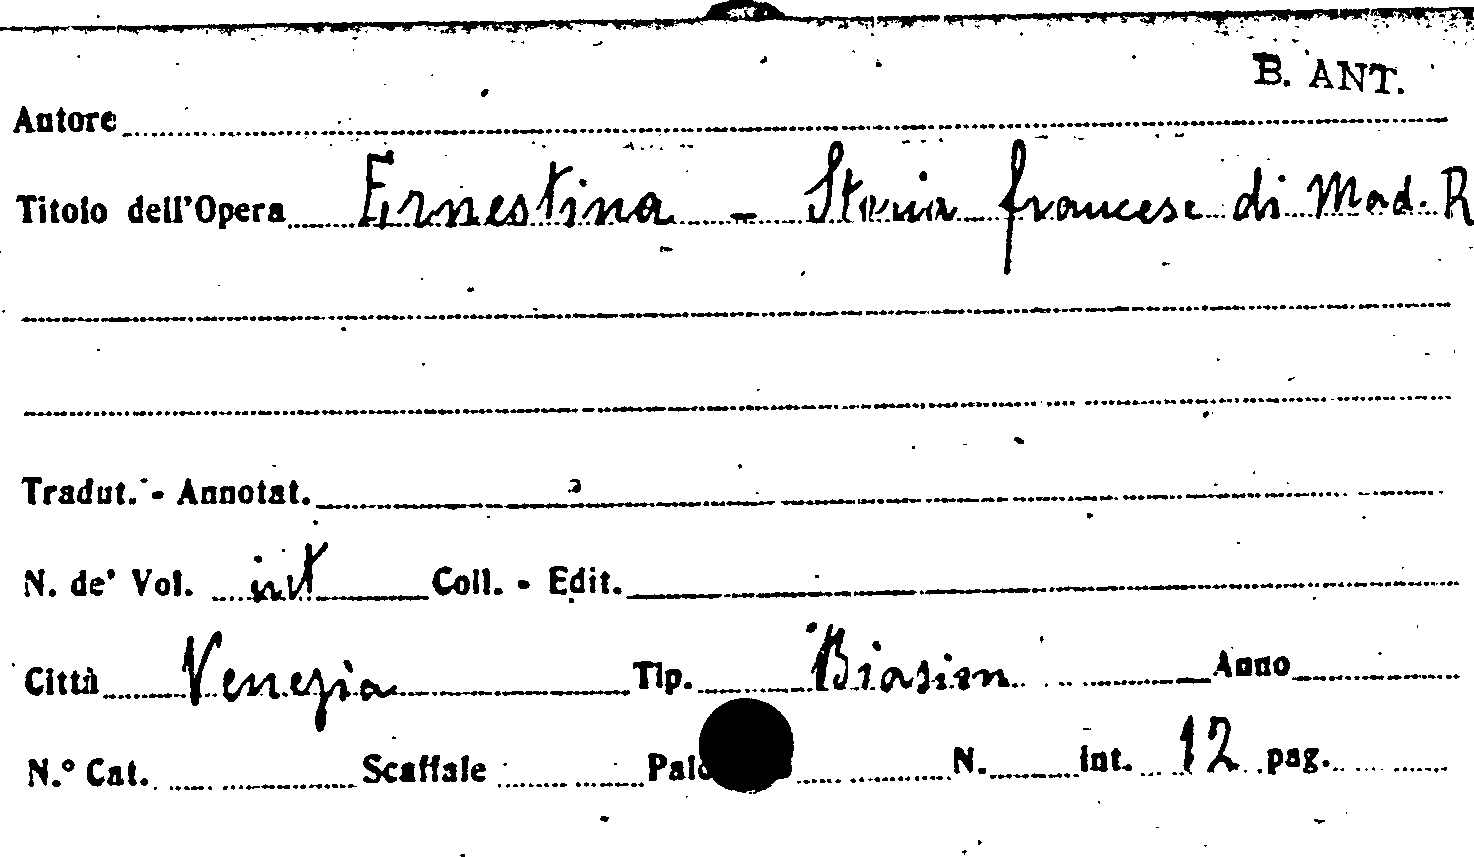 B. ANT.
Autore
Titolo dell'Opera Ernestina - Storia francese di Mad. R
Tradut. - Annotat.
N. de' Vol. int Coll. - Edit.
Città Venezia Tip. Biasion Anno
N.° Cat. Scaffale N. int. 12 pag.